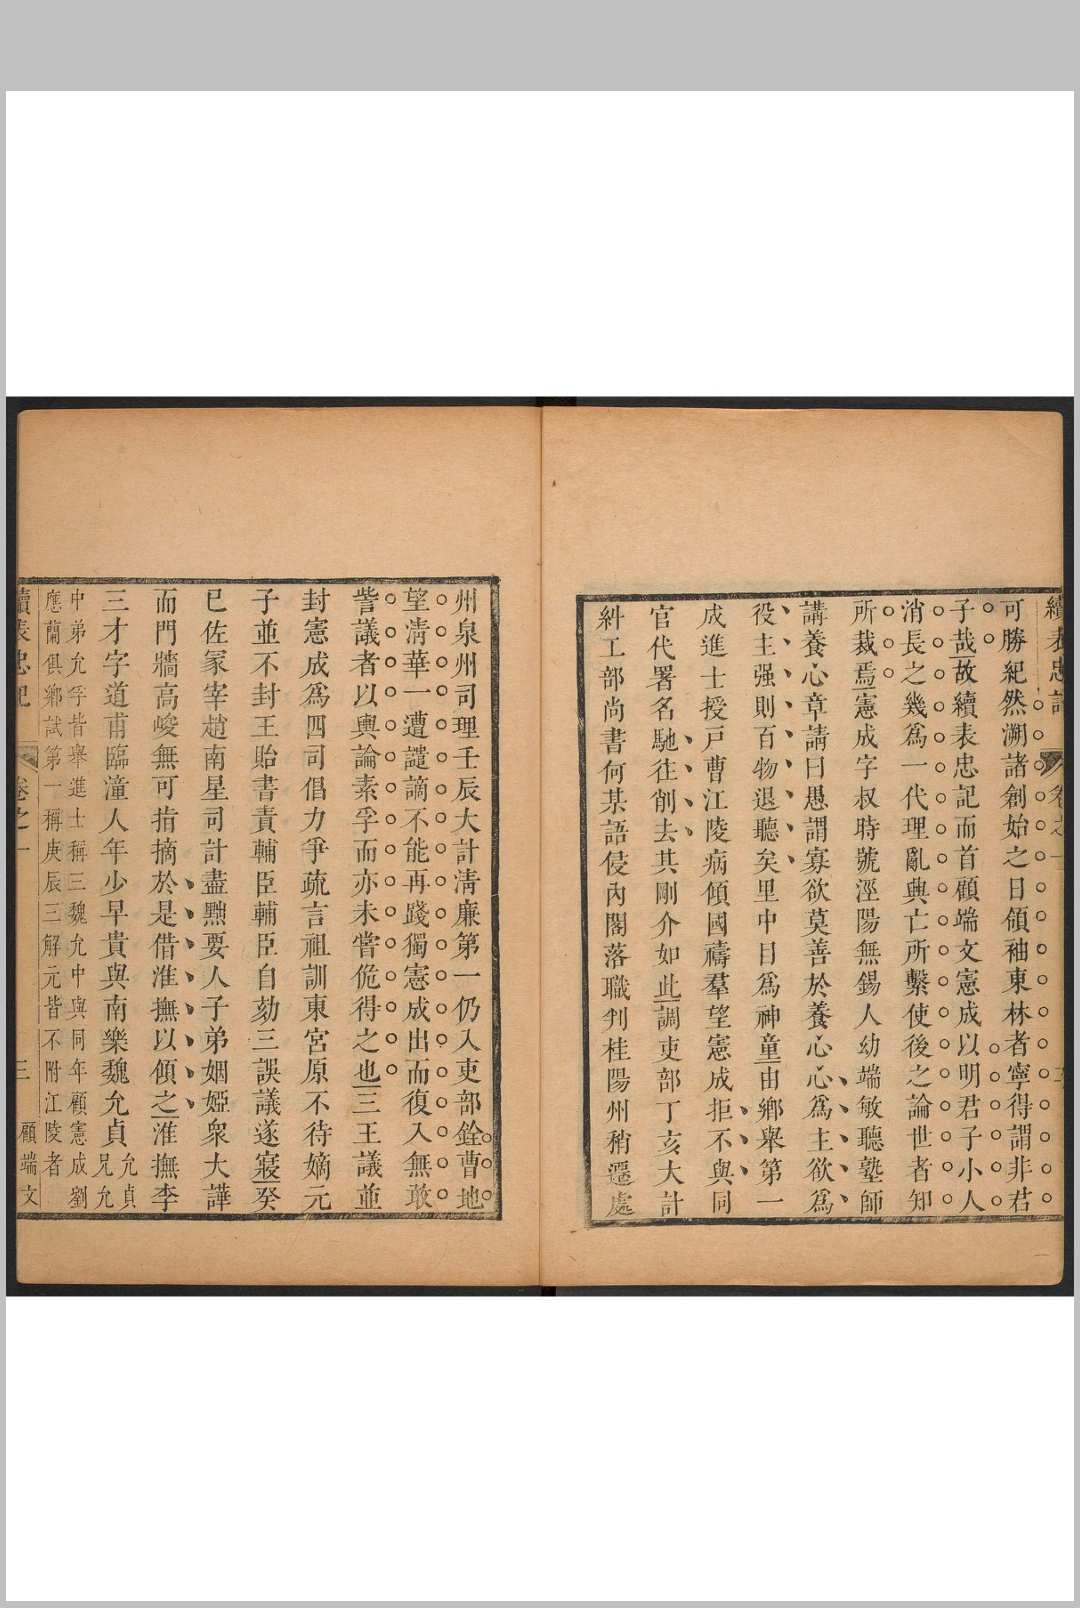 續表忠記
卷之一
可勝紀然溯諸創始之日領袖東林者寧得謂非君
子哉故續表忠記而首顧端文憲成以明君子小人
消長之幾爲一代理亂興亡所繫使後之論世者知
所裁焉憲成字叔時號涇陽無錫人幼端敏聽塾師
講養心章請曰愚謂寡欲莫善於養心心爲主欲爲
役主强則百物退聽矣里中目爲神童由鄉舉第一
成進士授戸曹江陵病傾國禱羣望憲成拒不與同
官代署名馳往削去其剛介如此調吏部丁亥大計
糾工部尚書何某語侵內閣落職判桂陽州稍遷處
州泉州司理壬辰大計淸廉第一仍入吏部銓曹地
望淸華一遭譴謫不能再踐獨憲成出而復入無敢
訾議者以輿論素孚而亦未嘗倖得之也三王議並
封憲成爲四司倡力爭疏言祖訓東宮原不待嫡元
子並不封王貽書責輔臣輔臣自劾三誤議遂寢癸
巳佐冢宰趙南星司計盡黜要人子弟姻婭衆大譁
而門牆高峻無可指摘於是借淮撫以傾之淮撫李
三才字道甫臨潼人年少早貴與南樂魏允貞允貞兄允
中弟允孚皆舉進士稱三魏允中與同年顧憲成劉
應蘭俱鄉試第一稱庚辰三解元皆不附江陵者
續表忠記
卷之一
三
顧端文